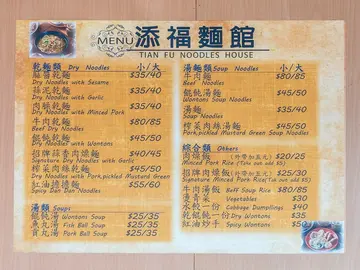 MENU 添福麵館
TIAN FU NOODLES HOUSE
乾麵類 Dry Noodles 小/大
麻醬乾麵 $35/40
Dry Noodles with Sesame
蒜泥乾麵 $35/40
Dry Noodles with Garlic
肉臊乾麵 $35/40
Dry Noodles with Minced Pork
牛肉乾麵 $80/85
Beef Dry Noodles
餛飩乾麵 $45/50
Dry Wontons Noodles
招牌蒜香肉燥麵 $40/45
Signature Dry Noodles with Garlic
榨菜肉絲乾麵 $45/50
Dry Noodles with Pork,pickled Mustard Green
紅油擔擔麵 $55/60
Spicy Dan Dan Noodles
湯類 Soups
餛飩湯 Wontons Soup $25/35
魚丸湯 Fish Ball Soup $25/35
貢丸湯 Pork Ball Soup $25/35
湯麵類 Soup Noodles 小/大
牛肉麵 $80/85
Beef Noodles
餛飩湯麵 $45/50
Wontons Soup Noodles
湯麵 $35/40
Soup Noodles
榨菜肉絲湯麵 $45/50
Pork,pickled Mustard Green Soup Noodles
綜合類 Others
肉燥飯 (外帶加五元) $20/25
Minced Pork Rice (Take out add $5)
招牌肉燥飯 (外帶加五元) $25/30
Signature Minced Pork Rice(Take out add $5)
牛肉湯飯 Beff Soup Rice $80/85
燙青菜 Vegetables $30
水餃一份 Cabbage Dumplings $40
乾餛飩一份 Dry Wontons $35
紅油炒手 Spicy Wontons $50